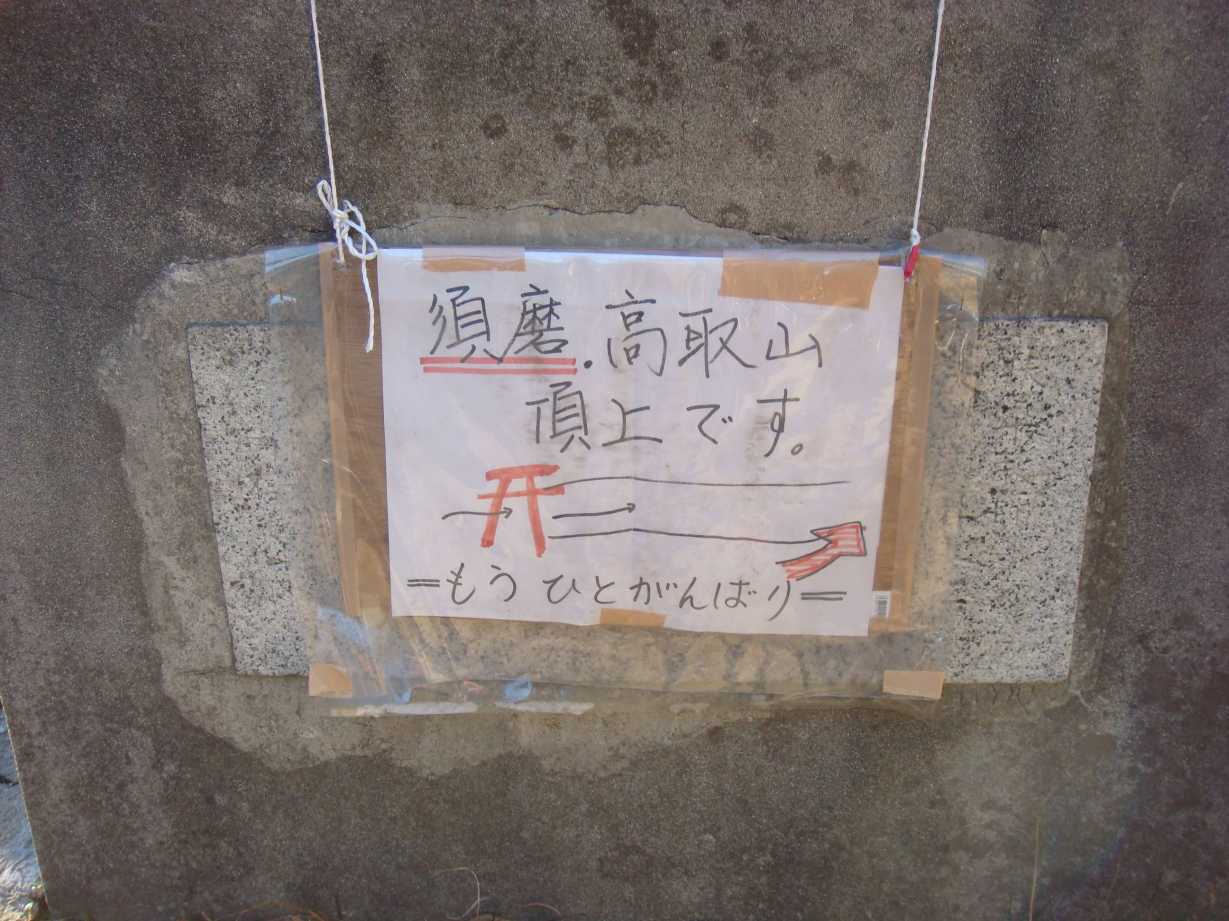 須磨.高取山
頂上です。
=もうひとがんばり=